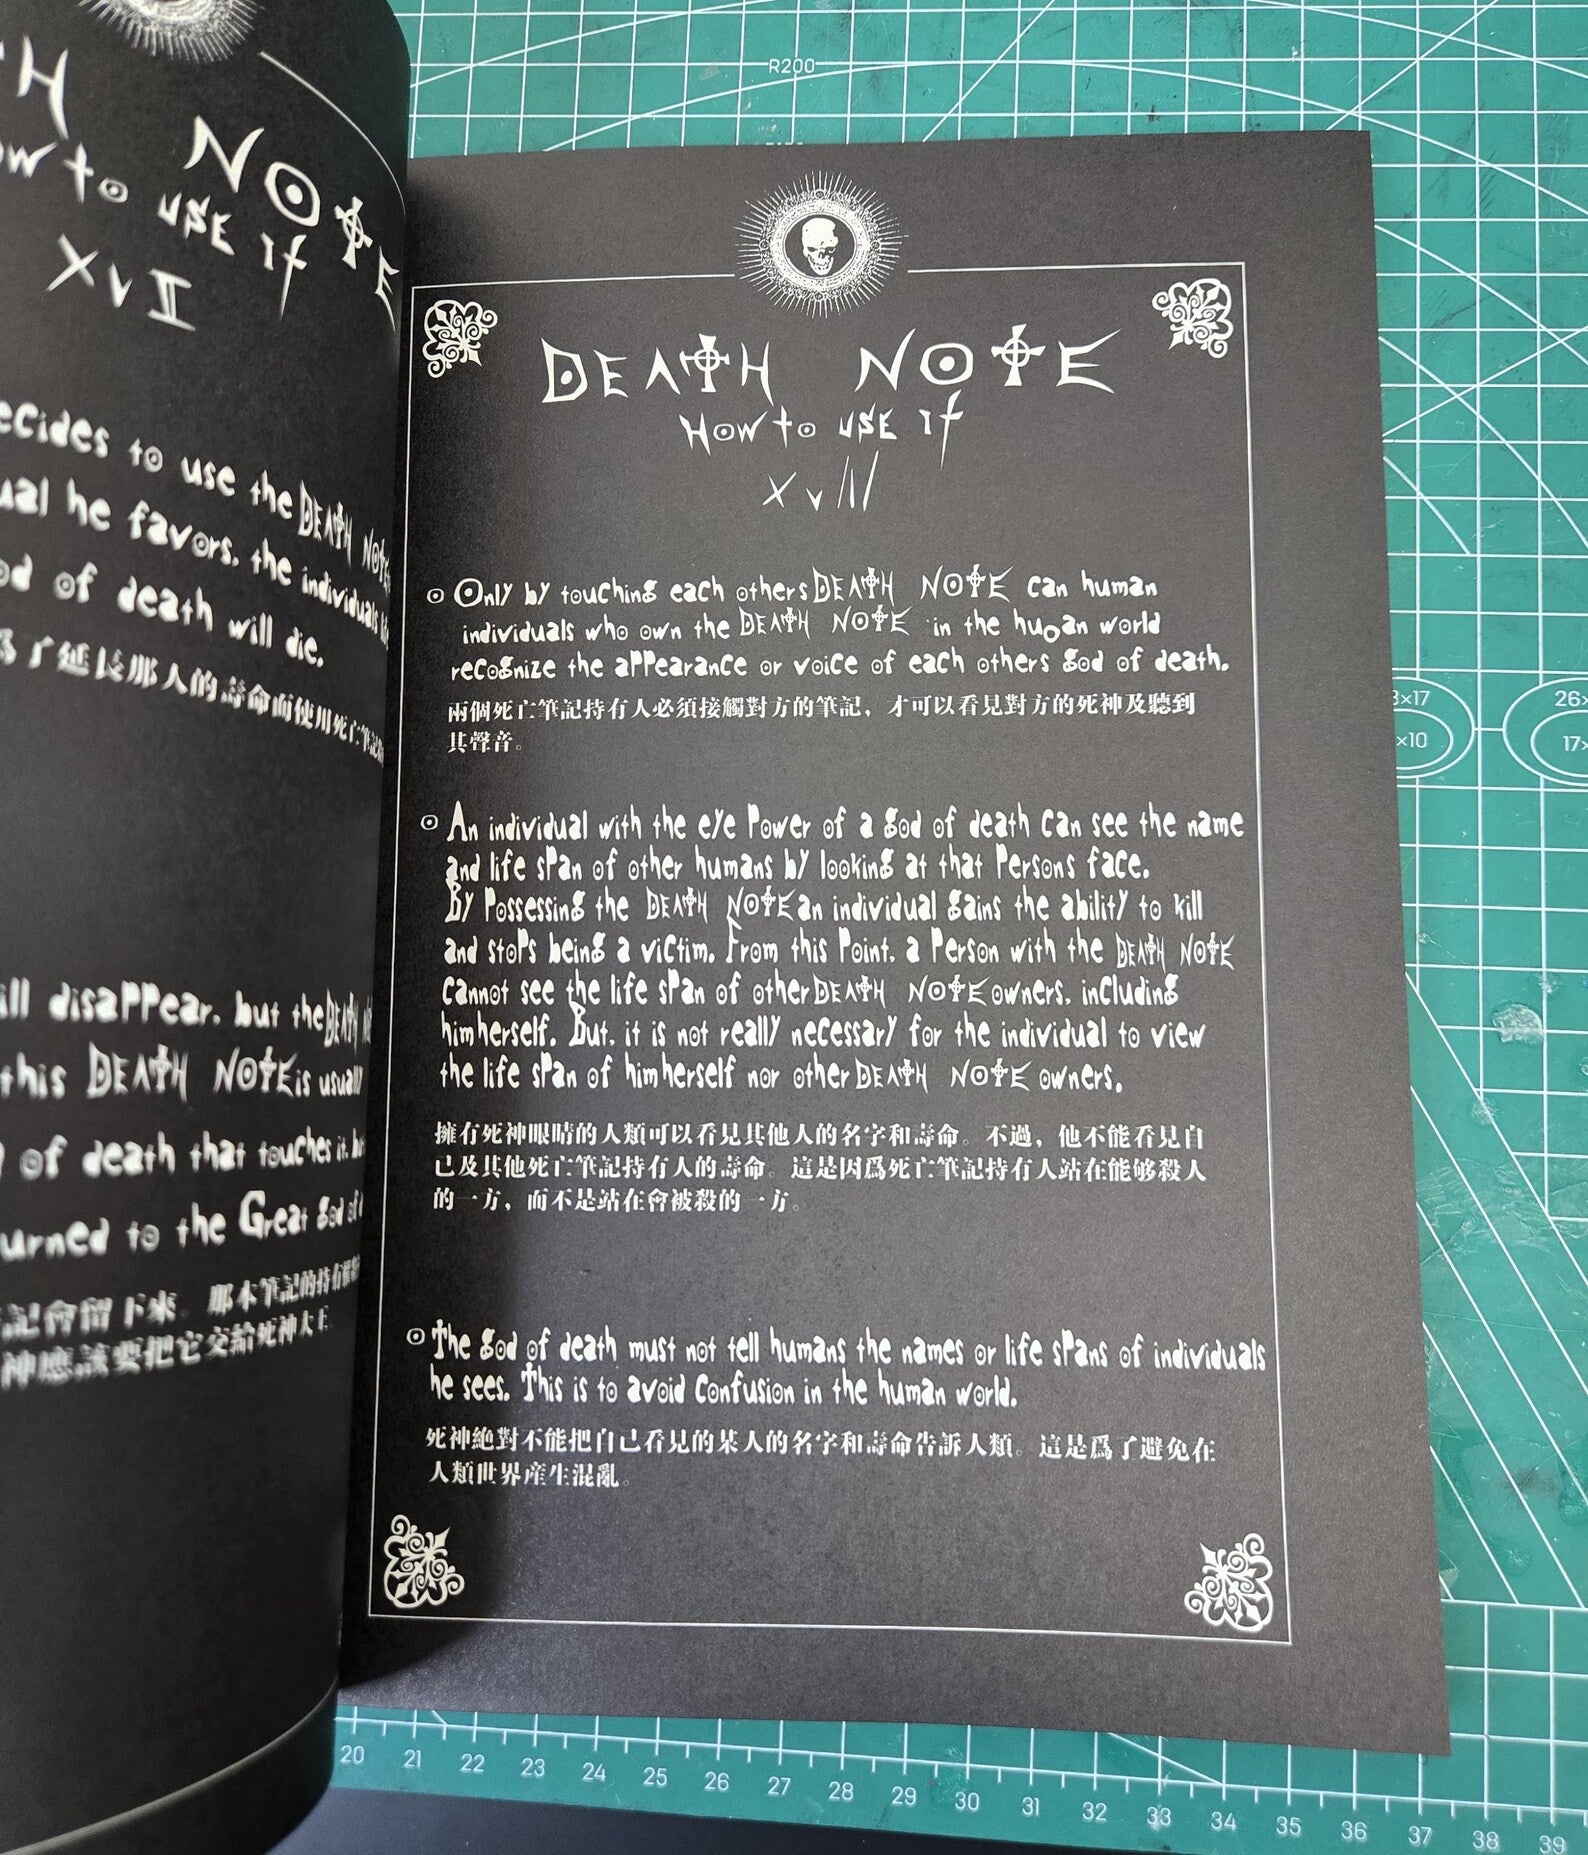 H NOTE
ow to use it
XVII
ecides to use the DEATH NOTE
ual he favors, the individuals
od of death will die.
爲了延長那人的壽命而使用死亡筆記
ill disappear, but the DEATH
this DEATH NOTE is usually
of death that touches it, but
urned to the Great god of
記會留下來。那本筆記的持有權
神應該要把它交給死神大王
R200
DEATH NOTE
How to use it
XVIII
Only by touching each others DEATH NOTE can human
individuals who own the DEATH NOTE in the huoan world
recognize the appearance or voice of each others god of death.
兩個死亡筆記持有人必須接觸對方的筆記，才可以看見對方的死神及聽到
其聲音。
An individual with the eye power of a god of death can see the name
and life span of other humans by looking at that persons face.
By possessing the DEATH NOTE an individual gains the ability to kill
and stops being a victim. From this point, a person with the DEATH NOTE
cannot see the life span of other DEATH NOTE owners, including
himherself. But, it is not really necessary for the individual to view
the life span of himherself nor other DEATH NOTE owners.
擁有死神眼睛的人類可以看見其他人的名字和壽命。不過，他不能看見自
己及其他死亡筆記持有人的壽命。這是因爲死亡筆記持有人站在能够殺人
的一方，而不是站在會被殺的一方。
The god of death must not tell humans the names or life spans of individuals
he sees. This is to avoid confusion in the human world.
死神絶對不能把自己看見的某人的名字和壽命告訴人類。這是爲了避免在
人類世界産生混亂。
3×17
×10
26×
17×
20 21 22 23 24 25 26 27 28 29 30 31 32 33 34 35 36 37 38 39